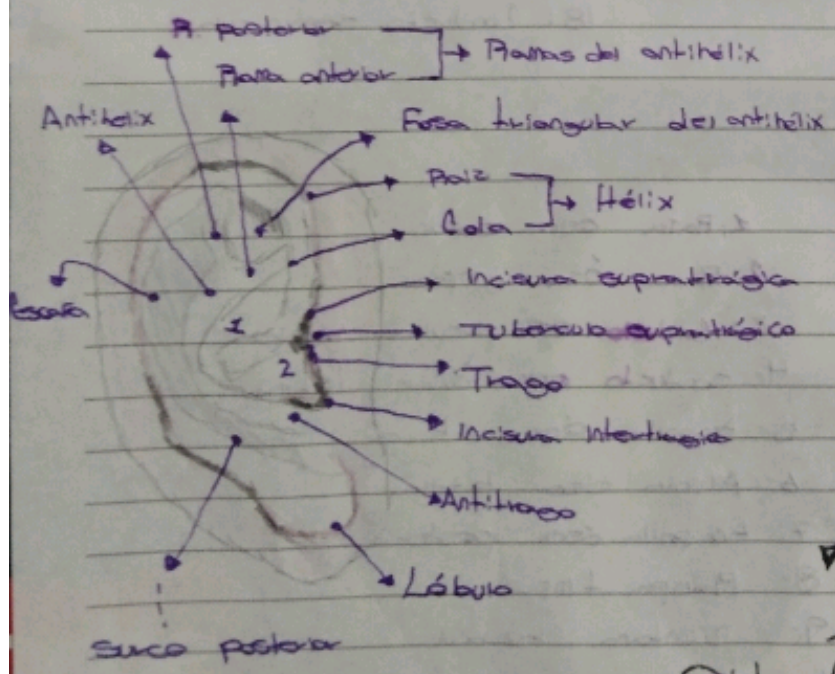 R posterior
Rama anterior
Ramas del antihélix
Antihelix
Fosa triangular del antihélix
Raiz
Cola
Hélix
Incisura supratrágica
Escafa
1
Tuberculo supratrágico
2
Trago
Incisura intertragica
Antitrago
Lóbulo
Surco posterior